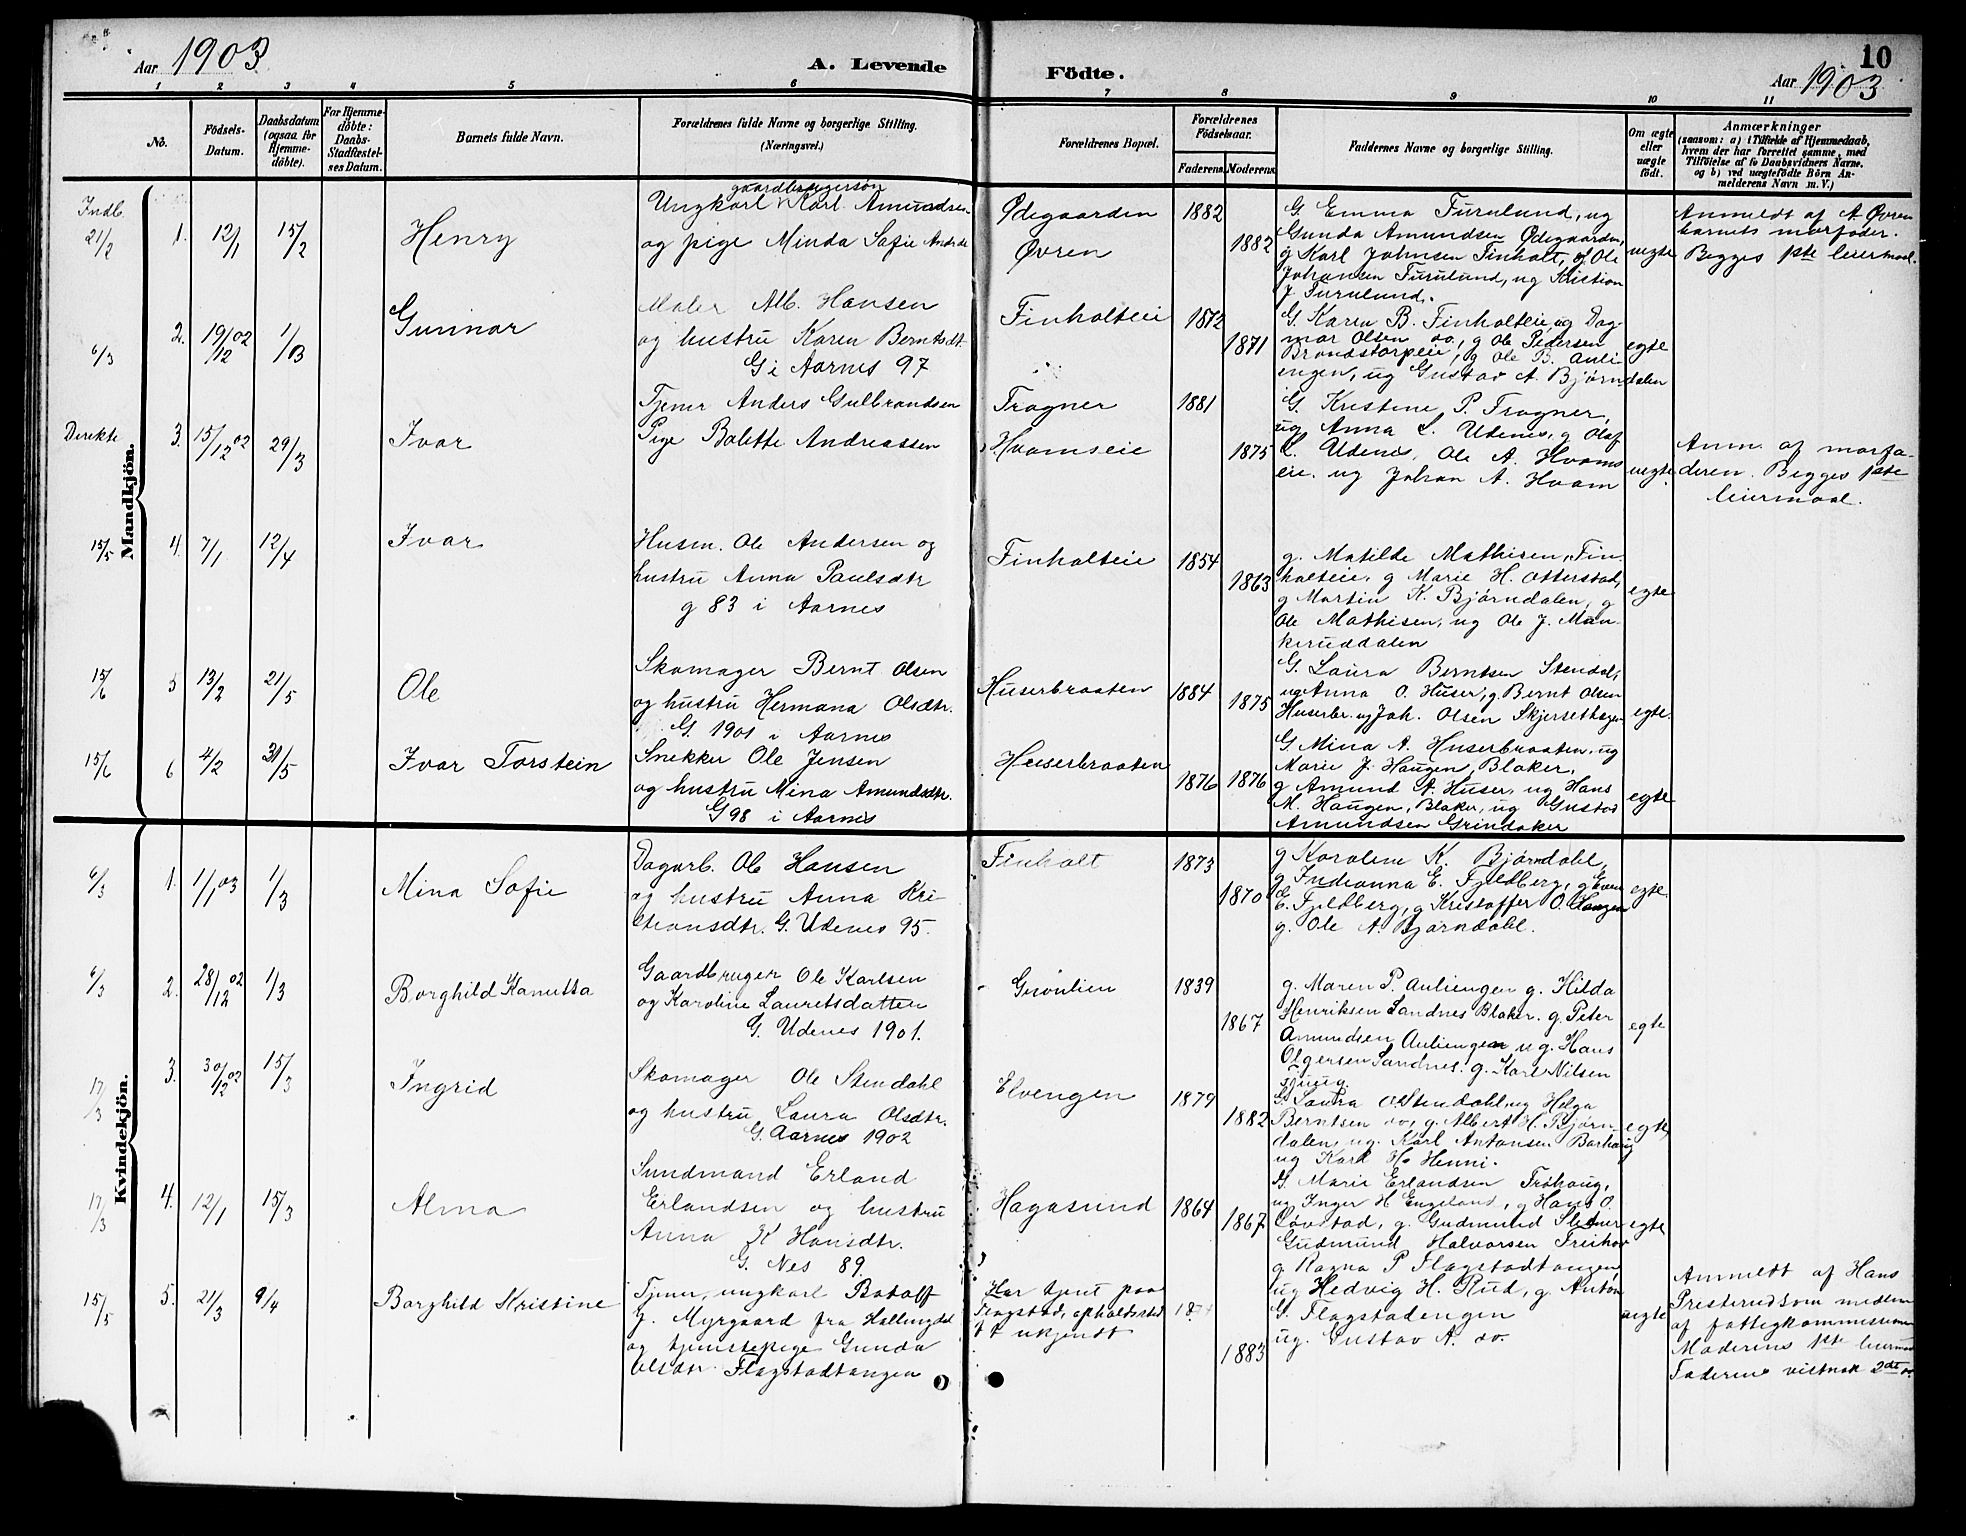 Aar 1903
A. Levende
Födte.
10
Aar 1903
1 2 3 4 5 6 7 8 9 10 11
No.
Födsels-
Datum.
Daabsdatum
(ogsaa for
Hjemme-
döbte).
For Hjemme-
döbte:
Daabs-
Stadfæstel-
ses Datum.
Barnets fulde Navn.
Forældrenes fulde Navne og borgerlige Stilling.
(Næringsvei.)
Forældrenes Bopæl.
Forældrenes
Födselsaar.
Faderens
Moderens
Faddernes Navne og borgerlige Stilling.
Om ægte
eller
uægte
födt.
Anmærkninger
(saasom: a) i Tilfælde af Hjemmedaab,
hvem der har forrettet samme, med
Tilföielse af to Daabsvidners Navne,
og b) ved uægtefödte Börn An-
melderens Navn m. V.)
Mandkjön.
Indb.
21/2
1. 12/1 15/2
Henry
gaardbrugersön
Ungkarl Karl Amundsen
og pige Minda Sofie Andr.dt
Ødegaarden
Øvren
1882
1882
G. Emma Furulund, ug
Gunda Amundsen Ødegaarden,
g Karl Johnsen Finholt, g Ole
Johansen Furulund, ug Kristian
J. Furulund.
uegte
Anmeldt af A. Øvren
barnets morfader.
Begges 1ste leiermaal.
6/3
2. 19/12 02 1/3
Gunnar
Maler Alb. Hansen
og hustru Karen Berntsdt.
G i Aarnes 97
Finholteie
1872
1871
G. Karen B. Finholteie, ug Dag-
mar Olsen do., g Ole Pedersen
Brandstorpeie, g Ole B. Auli-
engen, ug Gustav A. Bjørndalen
egte
Direkte
3. 15/12 02 29/3
Ivar
Tjener Anders Gulbrandsen
Pige Bolette Andreassen
Tragner
Hvamseie
1881
1875
G. Kristine P. Tragner,
ug Anna L. Udenes, g Olaf
L. Udenes, Ole A. Hvams
eie, ug Johan A. Hvam
uegte.
Anm. af morfa-
deren. Begges 1ste
leiermaal.
15/5
4. 7/1 12/4
Ivar
Husm. Ole Andersen og
hustru Anna Paulsdtr
g 83 i Aarnes
Finholteie
1854
1863
g. Matilde Mathisen, Fin-
holteie, g Marie H. Otterstad,
g Martin K. Bjørndalen, g
Ole Mathisen, ug Ole J. Mun-
keruddalen
egte
15/6
5 13/2 21/5
Ole
Skomager Bernt Olsen
og hustru Hermana Olsdtr.
G. 1901 i Aarnes
Huserbraaten
1884
1875
G. Laura Berntsen Stendal,
ug Anna O. Huser, g Bernt Olsen
Huserbr. ug Joh. Olsen Skjersethagen
egte.
15/6
6 4/2 31/5
Ivar Torstein
Snekker Ole Jensen
og hustru Mina Amundsdtr.
G 98 i Aarnes
Huserbraaten
1876 1876
G. Mina A. Huserbraaten, ug
Marie J. Haugen, Blaker,
g Amund A. Huser, ug Hans
M. Haugen, Blaker, ug Gustav
Amundsen Grindaker
egte
Kvindekjön.
6/3
1. 1/1 03 1/3
Mina Sofie
Dagarb. Ole Hansen
og hustru Anna Kri-
stiansdtr. G. Udenes 95.
Finholt
1873
1870
g Karoline K. Bjørndahl,
g Indianna E. Fjeldberg, g Even
E. Fjeldberg, g Kristoffer O. Haugen
g. Ole A. Bjørndahl.
egte.
6/3
2. 28/12 02 1/3
Borghild Kanutta
Gaardbruger Ole Karlsen
og Karoline Lauretsdatter
G. Udenes 1901.
Grønlien
1839
1867
g. Maren P. Auliengen g. Hilda
Henriksen Sandnes Blaker. g. Peter
Amundsen Auliengen ug. Hans
Olgersen Sandnes. g. Karl Nilsen
egte
17/3
3. 30/12 02 15/3
Ingrid
Skomager Ole Stendahl
og hustru Laura Olsdtr.
G. Aarnes 1902
Elvengen
1879
1882
G. Laura O. Stendahl, ug Helga
Berntsen do, g. Albert H. Bjørn-
dalen, ug. Karl Antonsen Borhaug
ug Karl H. Henni.
egte
17/3
4. 12/1 15/3
Alma
Sundmand Erland
Erlandsen og hustru
Anna K Hansdtr.
G. Nes 89.
Hagasund
1864
1867
G. Marie Erlandsen Frøhaug,
ug Inger H Engeland, g Hans O.
Løvstad, g. Gudmund Sletner
Gudmund Halvorsen Freihov
egte
15/5
5. 21/3 9/4
Borghild Kristine
Tjener, ungkarl Botolf
G. Myrgaard fra Hallingdal
og tjenestepige Gunda
Olsdtr. Flagstadtangen
Har tjent paa
Fragstad, opholdssted
ukjendt
1883
g Ragna P Flagstadtangen,
ug Hedvig H. Rud, g. Anton
G. Flagstadengen
ug. Gustav A. do.
uegte
Anmeldt af Hans
Presterud som medlem
af fattigkommissionen
Moderens 1ste leiermaal
Faderens vistnok 2det do.